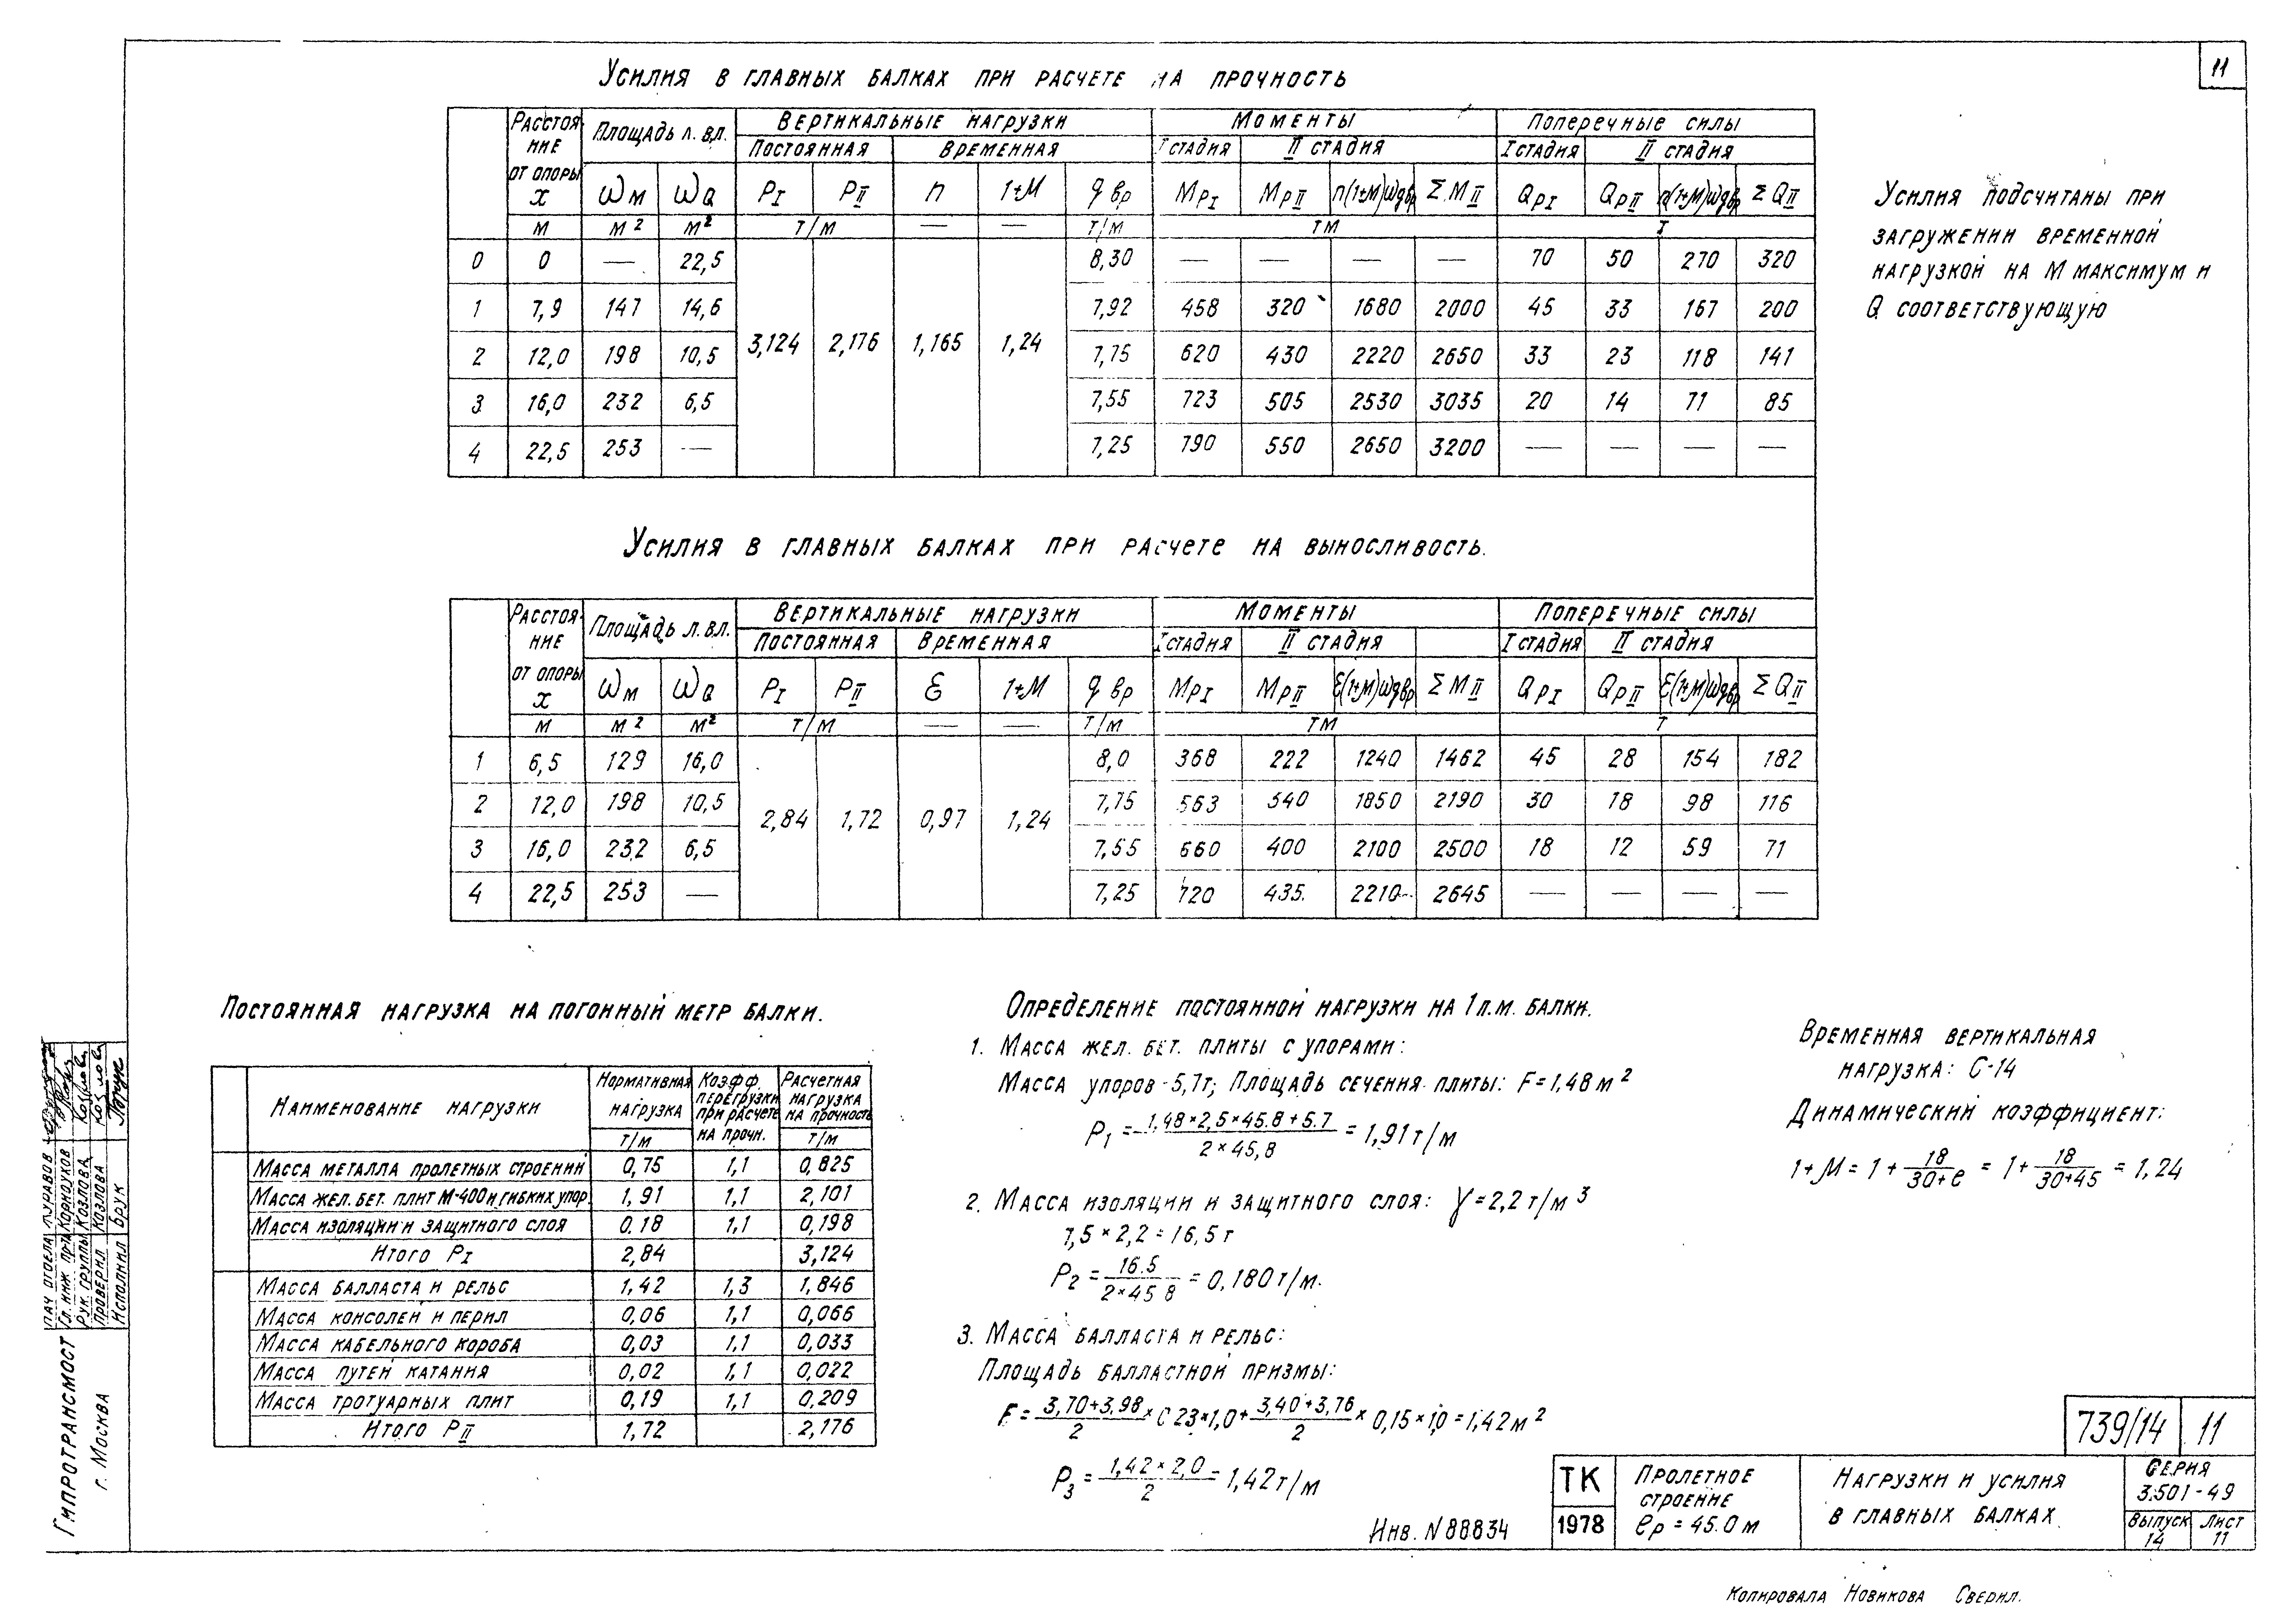 11
Усилия в главных балках при расчете на прочность
Расстояние от опоры x | Площадь л. вл. | Вертикальные нагрузки | Моменты | Поперечные силы
Постоянная | Временная | I стадия | II стадия | I стадия | II стадия
ωм | ωQ | PI | PII | n | 1+М | q вр | МPI | МPII | n(1+М)ωqвр | ΣМII | QPI | QPII | n(1+М)ωqвр | ΣQII
м | м² | м² | т/м | — | — | т/м | тм | т
0 | 0 | — | 22,5 | 3,124 | 2,176 | 1,165 | 1,24 | 8,30 | — | — | — | — | 70 | 50 | 270 | 320
1 | 7,9 | 147 | 14,6 | 7,92 | 458 | 320 | 1680 | 2000 | 45 | 33 | 167 | 200
2 | 12,0 | 198 | 10,5 | 7,75 | 620 | 430 | 2220 | 2650 | 33 | 23 | 118 | 141
3 | 16,0 | 232 | 6,5 | 7,55 | 723 | 505 | 2530 | 3035 | 20 | 14 | 71 | 85
4 | 22,5 | 253 | — | 7,25 | 790 | 550 | 2650 | 3200 | — | — | — | —
Усилия подсчитаны при
загружении временной
нагрузкой на М максимум и
Q соответствующую
Усилия в главных балках при расчете на выносливость.
Расстояние от опоры x | Площадь л. вл. | Вертикальные нагрузки | Моменты | Поперечные силы
Постоянная | Временная | I стадия | II стадия | I стадия | II стадия
ωм | ωQ | PI | PII | ε | 1+М | q вр | МPI | МPII | ε(1+М)ωqвр | ΣМII | QPI | QPII | ε(1+М)ωqвр | ΣQII
м | м² | м² | т/м | — | — | т/м | тм | т
1 | 6,5 | 129 | 16,0 | 2,84 | 1,72 | 0,97 | 1,24 | 8,0 | 368 | 222 | 1240 | 1462 | 45 | 28 | 154 | 182
2 | 12,0 | 198 | 10,5 | 7,75 | 563 | 340 | 1850 | 2190 | 30 | 18 | 98 | 116
3 | 16,0 | 232 | 6,5 | 7,55 | 660 | 400 | 2100 | 2500 | 18 | 12 | 59 | 71
4 | 22,5 | 253 | — | 7,25 | 720 | 435 | 2210 | 2645 | — | — | — | —
Постоянная нагрузка на погонный метр балки.
Наименование нагрузки | Нормативная нагрузка | Коэфф. перегрузки при расчете на прочн. | Расчетная нагрузка на прочность
т/м | т/м
Масса металла пролетных строений | 0,75 | 1,1 | 0,825
Масса жел. бет. плит М-400 и гибких упор. | 1,91 | 1,1 | 2,101
Масса изоляции и защитного слоя | 0,18 | 1,1 | 0,198
Итого PI | 2,84 | 3,124
Масса балласта и рельс | 1,42 | 1,3 | 1,846
Масса консолей и перил | 0,06 | 1,1 | 0,066
Масса кабельного короба | 0,03 | 1,1 | 0,033
Масса путей катания | 0,02 | 1,1 | 0,022
Масса тротуарных плит | 0,19 | 1,1 | 0,209
Итого PII | 1,72 | 2,176
Определение постоянной нагрузки на 1 п.м. балки.
1. Масса жел. бет. плиты с упорами:
Масса упоров - 5,7т; Площадь сечения плиты: F = 1,48 м²
P1 = (1,48 × 2,5 × 45.8 + 5.7) / (2 × 45,8) = 1,91 т/м
2. Масса изоляции и защитного слоя: γ = 2,2 т/м³
7,5 × 2,2 = 16,5 т
P2 = 16.5 / (2 × 45 8) = 0,180 т/м.
3. Масса балласта и рельс:
Площадь балластной призмы:
F = (3,70+3,98)/2 × 0 23 × 1,0 + (3,40+3,76)/2 × 0,15 × 1,0 = 1,42 м²
P3 = (1,42 × 2,0)/2 = 1,42 т/м
Временная вертикальная
нагрузка: С-14
Динамический коэффициент:
1+М = 1 + 18/(30+ℓ) = 1 + 18/(30+45) = 1,24
Гипротрансмост
г. Москва
Нач. отдела Журавов
Гл. инж. пр-та Корноухов
Рук. группы Козлова
Проверил Козлова
Исполнил Брук
739/14 | 11
ТК
1978
Пролетное
строение
ℓр = 45.0 м
Нагрузки и усилия
в главных балках
Серия
3.501-49
Выпуск
14
Лист
11
Инв. N 88834
Копировала Новикова Сверил.